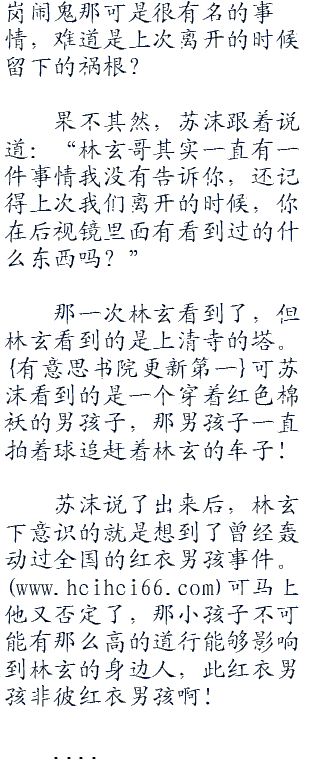 岗闹鬼那可是很有名的事
情，难道是上次离开的时候
留下的祸根？
果不其然，苏沫跟着说
道：“林玄哥其实一直有一
件事情我没有告诉你，还记
得上次我们离开的时候，你
在后视镜里面有看到过的什
么东西吗？”
那一次林玄看到了，但
林玄看到的是上清寺的塔。
{有意思书院更新第一}可苏
沫看到的是一个穿着红色棉
袄的男孩子，那男孩子一直
拍着球追赶着林玄的车子！
苏沫说了出来后，林玄
下意识的就是想到了曾经轰
动过全国的红衣男孩事件。
(www.hcihci66.com)可马上
他又否定了，那小孩子不可
能有那么高的道行能够影响
到林玄的身边人，此红衣男
孩非彼红衣男孩啊！
....